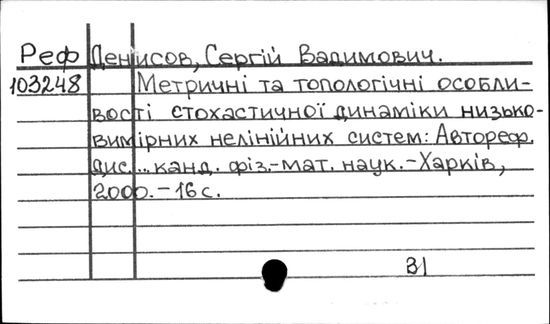 Реф Денисов, Сергій Вадимович.
103248 Метричні та топологічні особли-
вості стохастичної динаміки низько-
вимірних нелінійних систем: Автореф.
дис... канд. фіз.-мат. наук. -Харків,
2000. - 16 с.
31